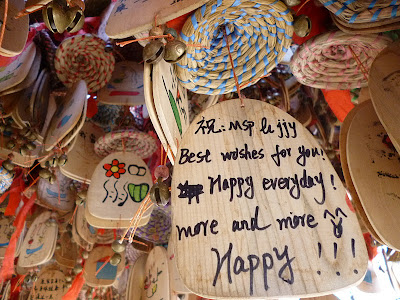 祝: msp & jjy
Best woshes for you!
Happy everyday!
more and more
Happy !!!